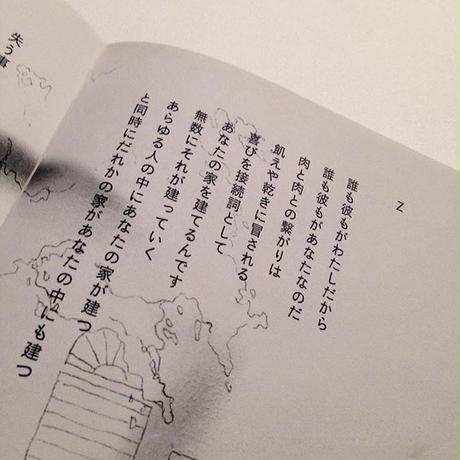 Z
誰も彼もがわたしだから
誰も彼もがあなたなのだ
肉と肉との繋がりは
飢えや乾きに冒される
喜びを接続詞として
あなたの家を建てるんです
無数にそれが建っていく
あらゆる人の中にあなたの家が建つ
と同時にだれかの家があなたの中にも建つ
失う事